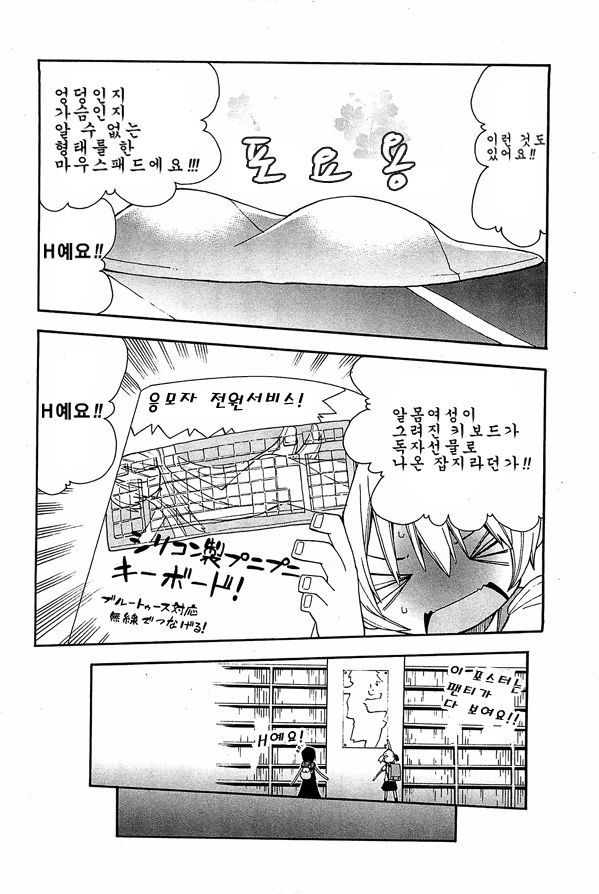 이런 것도
있어요!!
엉덩인지
가슴인지
알 수 없는
형태를 한
마우스패드에요!!!
포요용
H예요!!
알몸여성이
그려진 키보드가
독자선물로
나온 잡지라던가!!
응모자 전원서비스!
シリコン製プニプニ
キーボード!
ブルートゥース対応
無線でつなげる!
H예요!!
이 포스터는
팬티가
다 보여요!!
H예요!